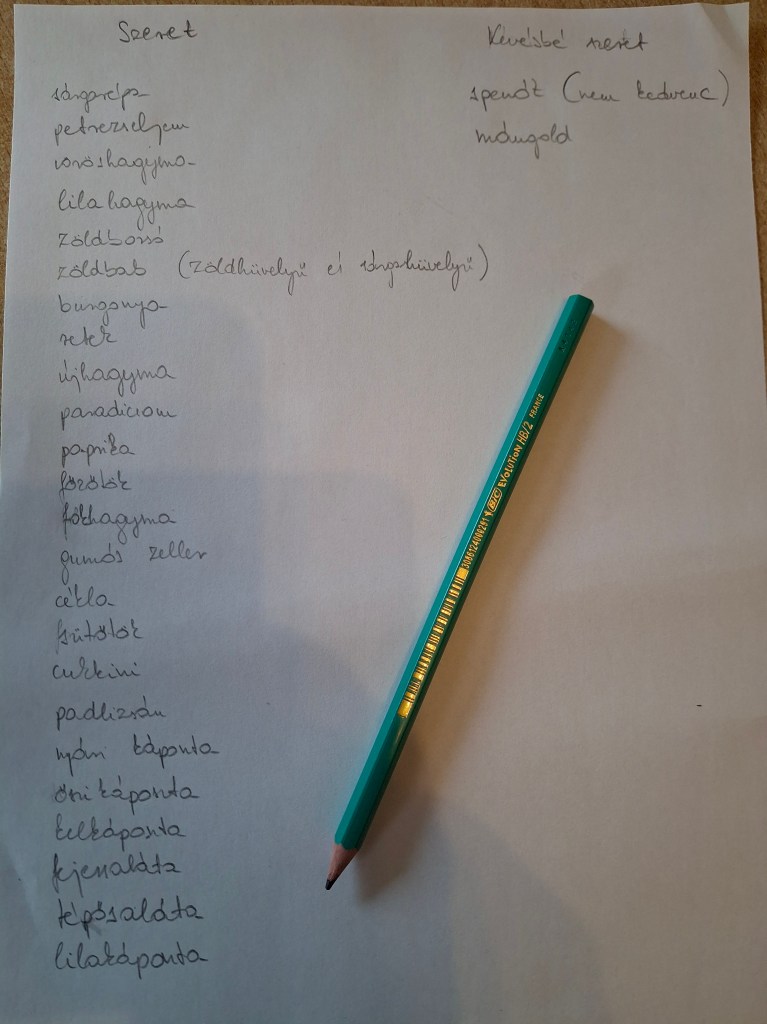 Szeret
Kevésbé szeret
sárgarépa
spenót (nem kedvenc)
petrezselyem
mángold
vöröshagyma
lila hagyma
zöldborsó
zöldbab (zöldhüvelyű és sárgahüvelyű)
burgonya
retek
újhagyma
paradicsom
paprika
főzőtök
fokhagyma
gumós zeller
cékla
sütőtök
cukkini
padlizsán
nyári káposzta
őszi káposzta
kelkáposzta
fejessaláta
tépősaláta
lilakáposzta
3086124000281 BIC EVOLUTION HB/2 FRANCE